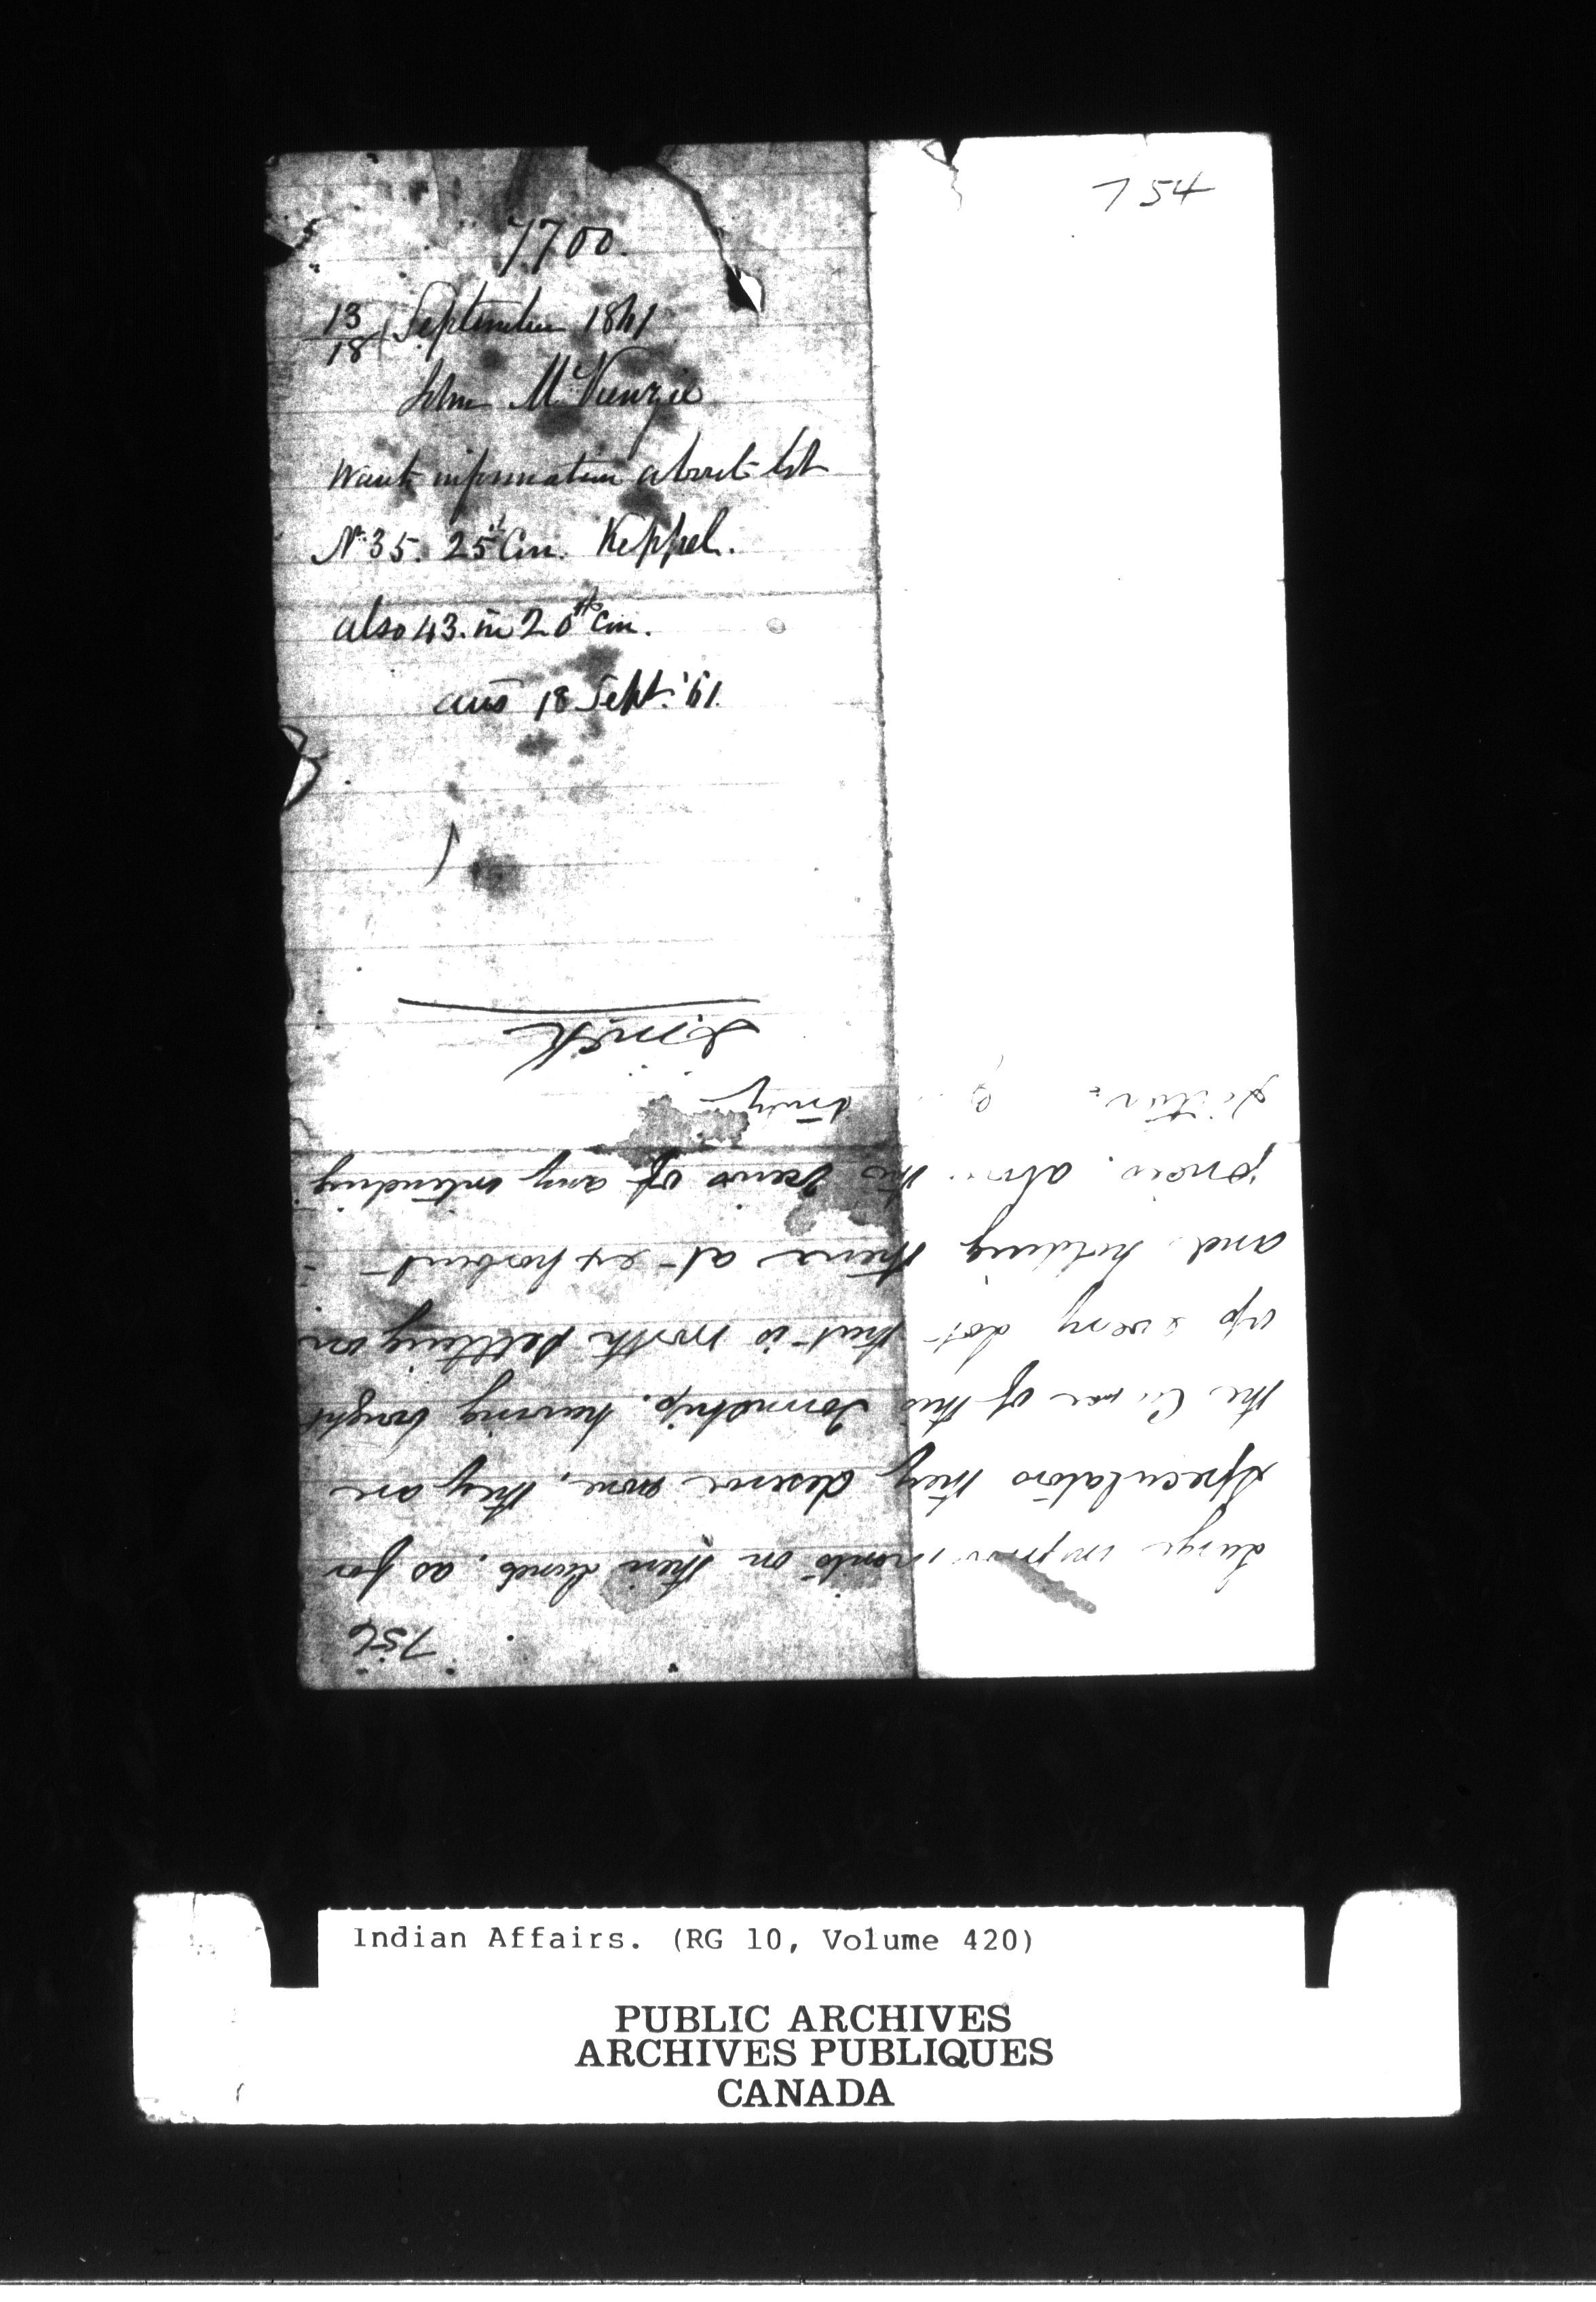 754
7700.
13/18 September 1861
John McKenzie
Want information about Lot
No 35. 25th Con. Keppel.
also 43. in 20th Con.
ans 18 Sept. '61.
756
Large improvements on their Lands. as for
speculators they deserve none, they are
the Curse of this Township. having bought
up every Lot that is worth settling on
and holding them at exhorbent
prices. above the views of any intending
settler.
truly
J. McK
Indian Affairs. (RG 10, Volume 420)
PUBLIC ARCHIVES
ARCHIVES PUBLIQUES
CANADA